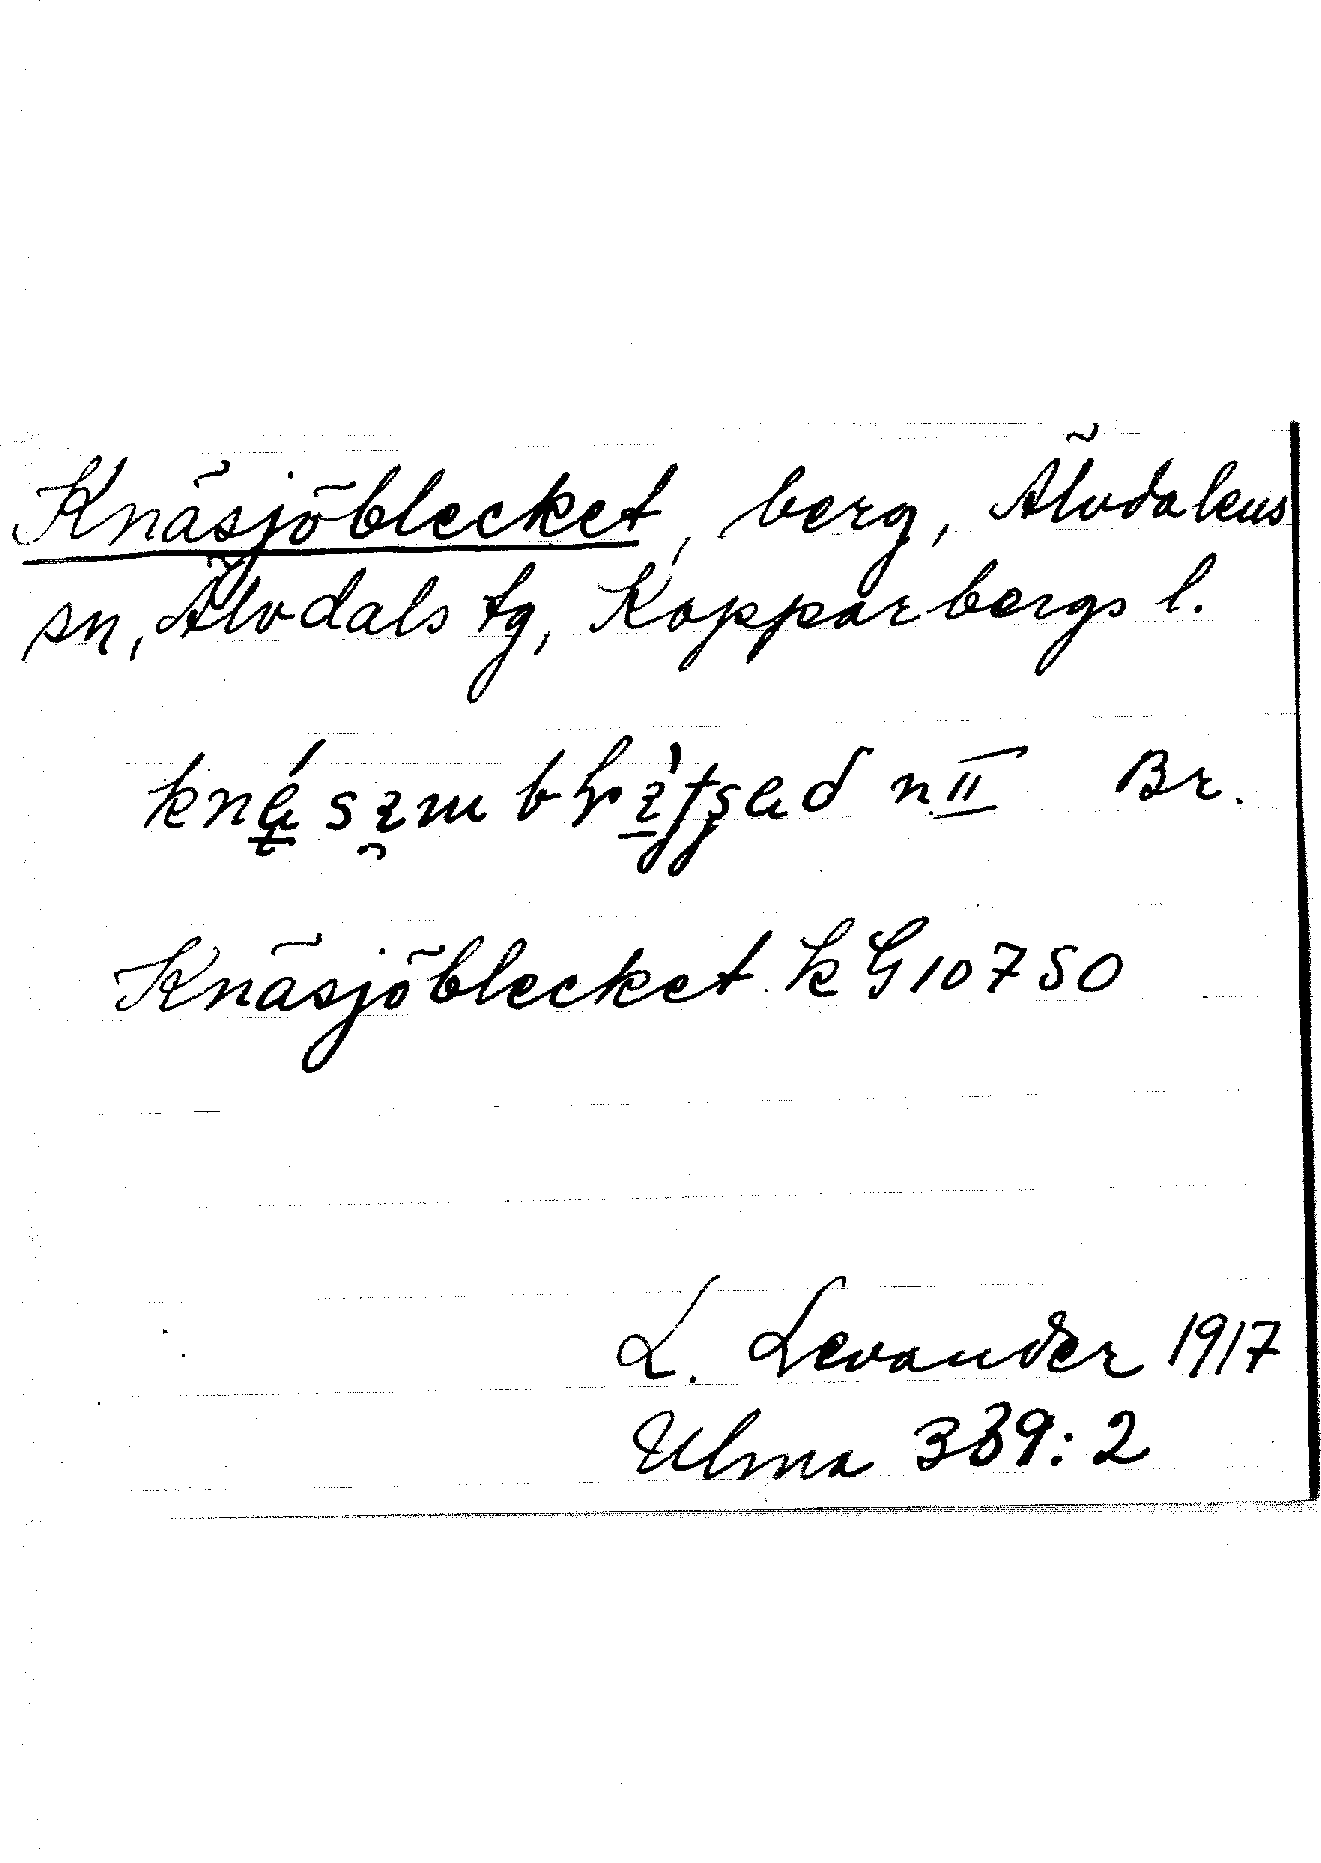 Knäsjöblecket, berg, Älvdalens
sn, Älvdals tg, Kopparbergs l.
n. II Br.
Knäsjöblecket kG10750
L. Levander 1917
Ulma 339:2